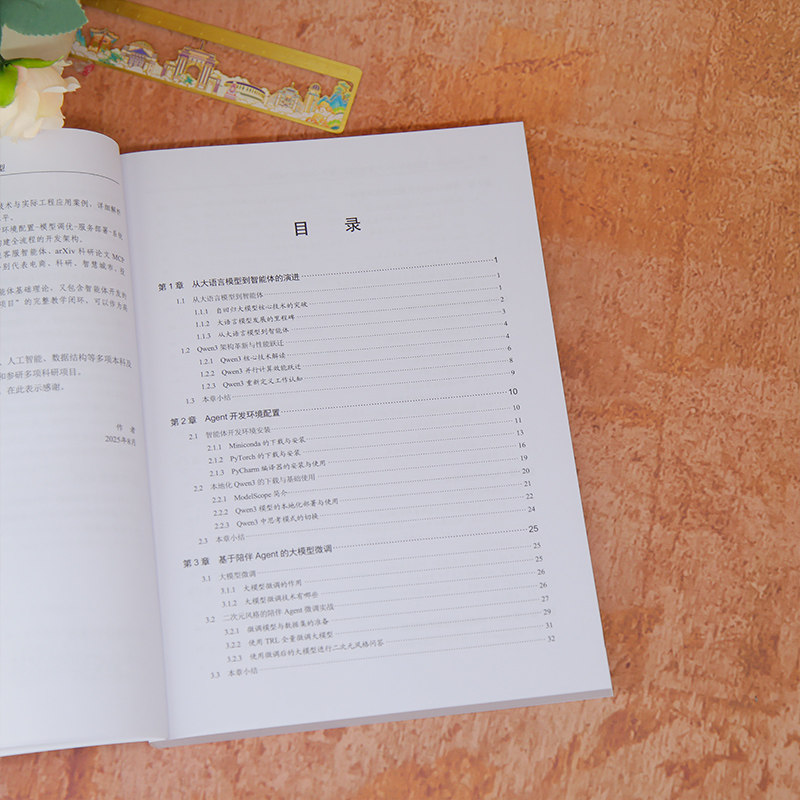 型
技术与实际工程应用案例，详细解析
平。
环境配置-模型调优-服务部署-系统
构建全流程的开发架构。
客服智能体、arXiv 科研论文 MCP
别代表电商、科研、智慧城市、投
能体基础理论，又包含智能体开发的
项目”的完整教学闭环，可以作为高
、人工智能、数据结构等多项本科及
和参研多项科研项目。
，在此表示感谢。
作 者
2025年8月
目 录
第 1 章 从大语言模型到智能体的演进 1
1.1 从大语言模型到智能体 1
1.1.1 自回归大模型核心技术的突破 1
1.1.2 大语言模型发展的里程碑 2
1.1.3 从大语言模型到智能体 3
1.2 Qwen3 架构革新与性能跃迁 4
1.2.1 Qwen3 核心技术解读 4
1.2.2 Qwen3 并行计算效能跃迁 6
1.2.3 Qwen3 重新定义工作认知 8
1.3 本章小结 9
第 2 章 Agent 开发环境配置 10
2.1 智能体开发环境安装 10
2.1.1 Miniconda 的下载与安装 11
2.1.2 PyTorch 的下载与安装 13
2.1.3 PyCharm 编译器的安装与使用 16
2.2 本地化 Qwen3 的下载与基础使用 20
2.2.1 ModelScope 简介 19
2.2.2 Qwen3 模型的本地化部署与使用 21
2.2.3 Qwen3 中思考模式的切换 22
2.3 本章小结 24
第 3 章 基于陪伴 Agent 的大模型微调 25
3.1 大模型微调 25
3.1.1 大模型微调的作用 25
3.1.2 大模型微调技术有哪些 26
3.2 二次元风格的陪伴 Agent 微调实战 26
3.2.1 微调模型与数据集的准备 27
3.2.2 使用 TRL 全量微调大模型 29
3.2.3 使用微调后的大模型进行二次元风格问答 31
3.3 本章小结 32